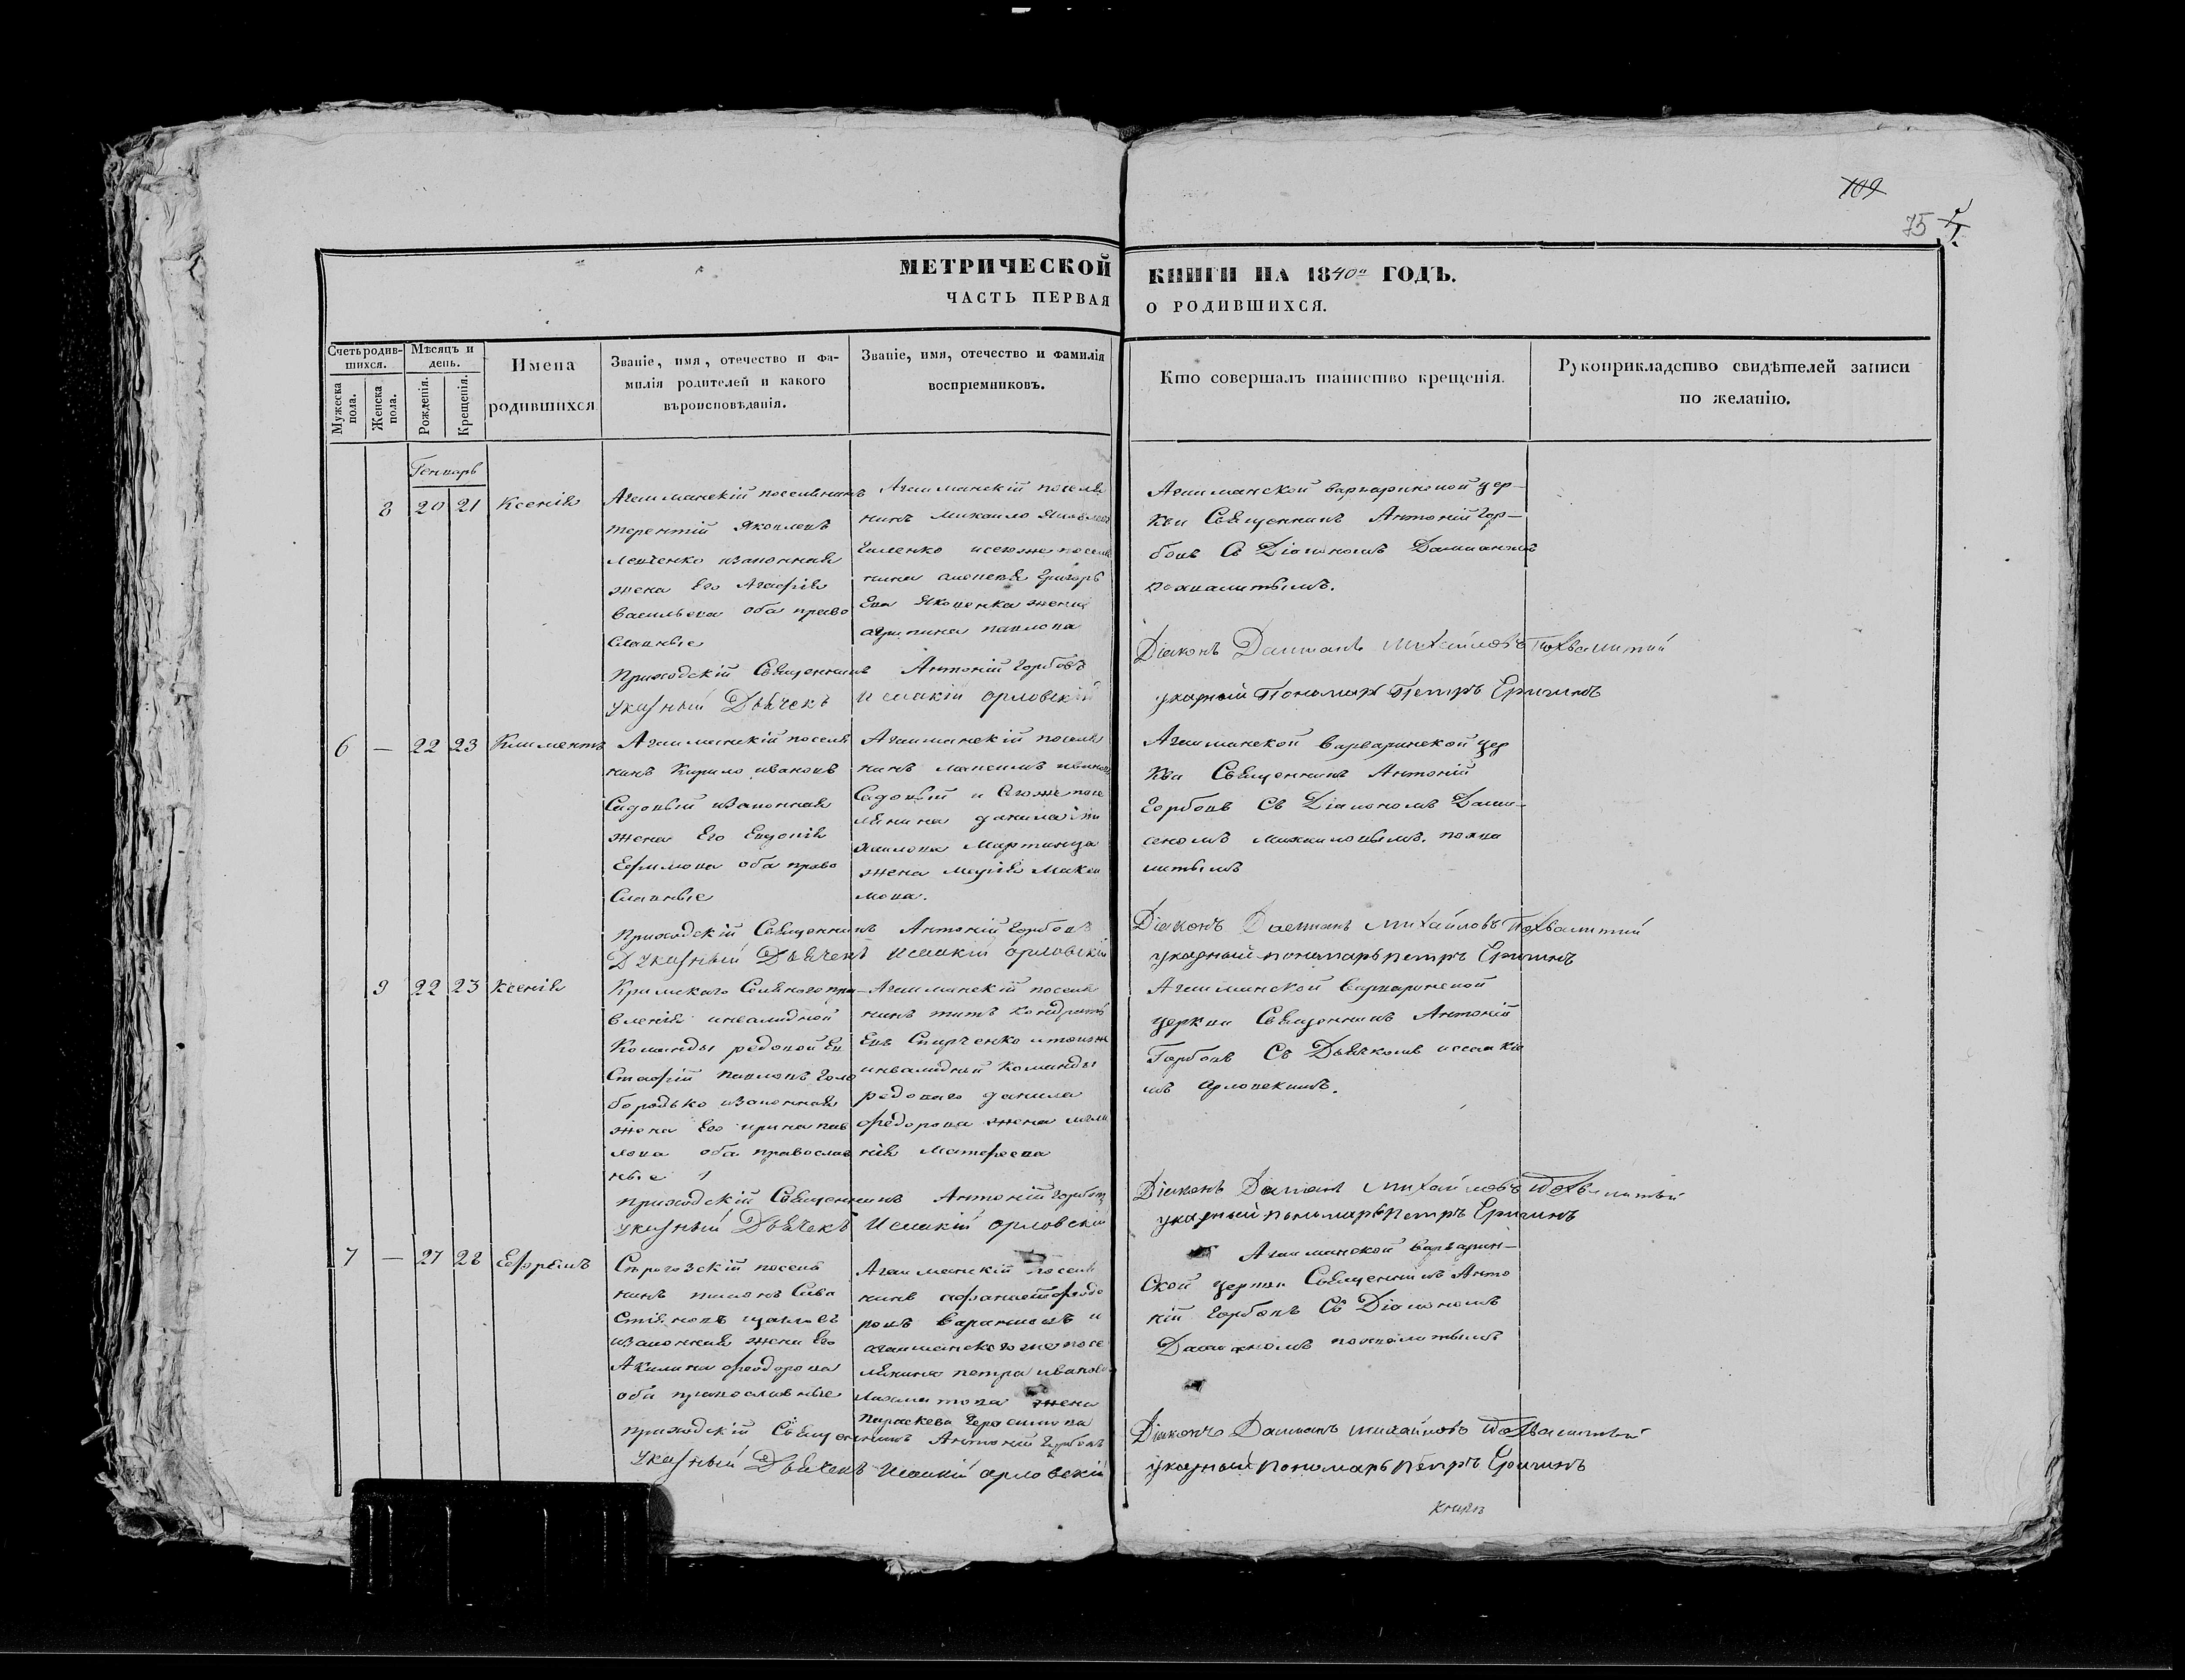 109
75
МЕТРИЧЕСКОЙ КНИГИ НА 1840й ГОДЪ.
ЧАСТЬ ПЕРВАЯ О РОДИВШИХСЯ.
Счетъ родив-
шихся.
Мужеска
пола.
Женска
пола.
Мѣсяцъ и
день.
Рожденія.
Крещенія.
Имена
родившихся
Званіе, имя, отечество и фа-
милія родителей и какого
вѣроисповѣданія.
Званіе, имя, отечество и фамилія
воспріемниковъ.
Кто совершалъ таинство крещенія.
Рукоприкладство свидѣтелей записи
по желанію.
Генварь
8 20 21 Ксенія
Агайманскій поселянинъ
терентій Яковлевъ
левченко изаконная
жена Его Агафія
васильева оба право
славные
Агайманскій поселя
нинъ Михайло Яковлевъ
поселя
нина Григорь
Ева Яковенка жена
агрипина павлова
Агайманской варваринской цер-
кви Священникъ Антоній Гор-
бовъ Съ Діакономъ Даміаномъ
похвалитымъ.
приходскій Священникъ Антоній Горбовъ
указный Дьячекъ Исаакій орловскій
Діаконъ Даміанъ Михайловъ Похвалитий
указный Пономарь Петръ Еригинъ
6 — 22 23 Климентъ
Агайманскій поселя
нинъ Кирило ивановъ
Садовый изаконная
жена Его Евдокія
Ефимова оба право
славные
Агайманскій поселя
нинъ максимъ ивановъ
Садовый и тогоже посе
лянина данила
Мартинца
жена марія Макси
мова.
Агайманской варваринской цер
кви Священникъ Антоній
Горбовъ Съ Діакономъ Дамі-
аномъ михайловымъ похва
литымъ
приходскій Священникъ Антоній Горбовъ
указный Дьячекъ Исаакій орловскій
Діаконъ Даміанъ Михайловъ Похвалитий
указный пономарь петръ Еригинъ
9 22 23 Ксенія
Кримскаго Солянаго пра-
вленія инвалидной
команды редовой Ев
стафій павловъ голо
бородько изаконная
жена Его ирина пав
лова оба православ
ные
Агайманскій поселя
нинъ титъ кондрать
Евъ Спирченко итойже
инвалидной команды
редоваго данила
федорова жена мела
нія Матфеева
Агайманской варваринской
церкви Священникъ Антоній
Горбовъ Съ Дьячкомъ исаакіе
мъ орловскимъ.
приходскій Священникъ Антоній Горбовъ
указный Дьячекъ Исаакій орловскій
Діаконъ Даміанъ Михайловъ Похвалитый
указный пономарь петръ Еригинъ
7 — 27 28 Ефремъ
Строгозскій поселя
нинъ Сава
стіяновъ
изаконная жена Его
Акилина феодорова
оба православные
Агайманскій поселя
нинъ афанасій феодо
ровъ и
агайманскаго же посе
лянина петра иванова
жена
Параскева Герасимова
Агайманской варварин-
ской церкви Священникъ Анто
ній Горбовъ Съ Діакономъ
Даміаномъ похвалитымъ
приходскій Священникъ Антоній Горбовъ
указный Дьячекъ Исаакій орловскій
Діаконъ Даміанъ Михайловъ Похвалитый
указный пономарь петръ Еригинъ